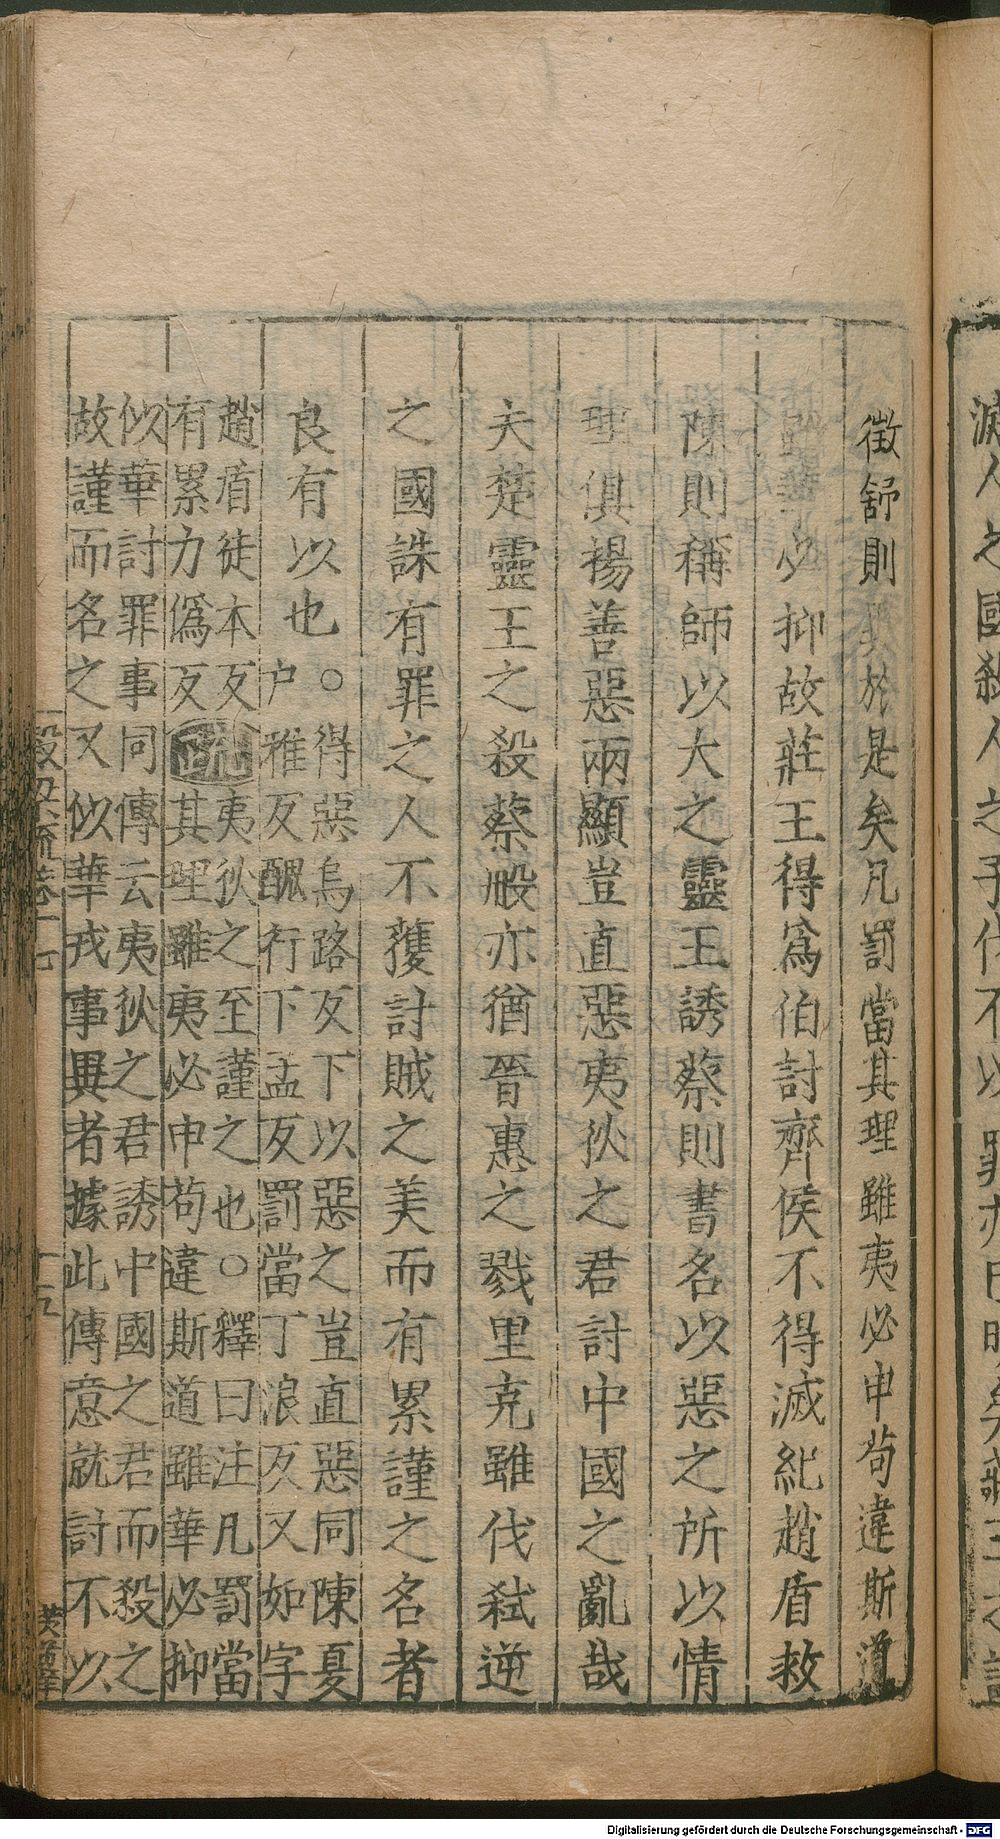 徵舒則異於是矣凡罰當其理雖夷必申苟違斯道
雖華必抑故莊王得為伯討齊侯不得滅紀趙盾救
陳則稱師以大之靈王誘蔡則書名以惡之所以情
理俱揚善惡兩顯豈直惡夷狄之君討中國之亂哉
夫楚靈王之殺蔡般亦猶晉惠之戮里克雖伐弒逆
之國誅有罪之人不獲討賊之美而有累謹之名者
良有以也○得惡烏路反下以惡之豈直惡同陳夏
戶雅反醜行下孟反罰當丁浪反又如字
趙盾徒本反
有累力偽反
疏
夷狄之至謹之也○釋曰注凡罰當
其理雖夷必申苟違斯道雖華必抑
似華討罪事同傳云夷狄之君誘中國之君而殺之
故謹而名之又似華戎事異者據此傳意就討不以
穀梁流卷十七
十五
滅人之國殺人之子伐不以罪亦已明矣莊王之討
Digitalisierung gefördert durch die Deutsche Forschungsgemeinschaft - DFG